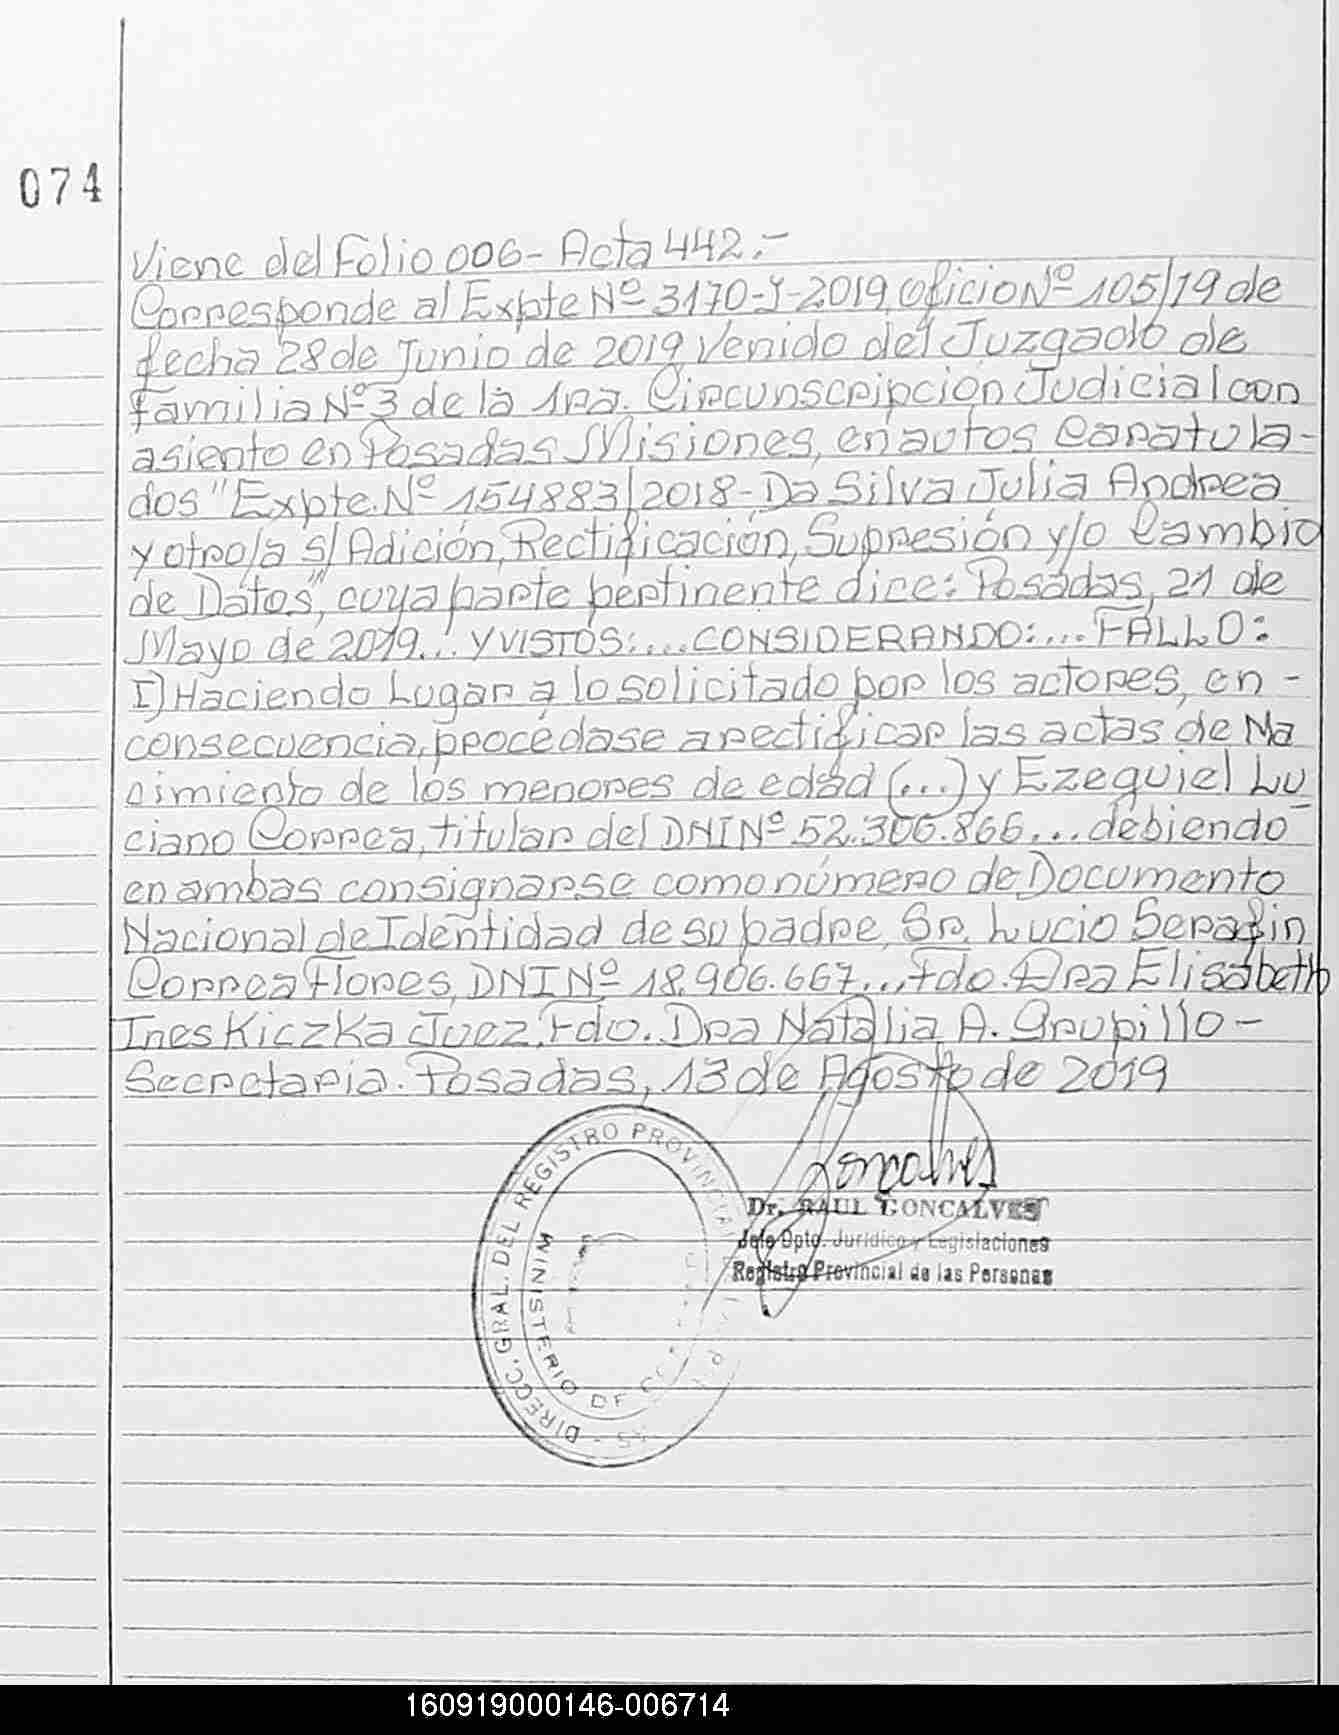 074
Viene del Folio 006 - Acta 442.-
Corresponde al Expte Nº 3170-Y-2019, oficio Nº 105/19 de
fecha 28 de Junio de 2019 Venido del Juzgado de
Familia Nº 3 de la 1ra. Circunscripción Judicial con
asiento en Posadas Misiones, en autos Caratula-
dos "Expte. Nº 154883/2018 - Da Silva Julia Andrea
y otro/a s/ Adición, Rectificación, Supresión y/o Cambio
de Datos", cuya parte pertinente dice: Posadas, 21 de
Mayo de 2019... Y VISTOS:... CONSIDERANDO:... FALLO:
I) Haciendo Lugar a lo solicitado por los actores, en -
consecuencia, procédase a rectificar las actas de Na
cimiento de los menores de edad (...) y Ezequiel Lu
ciano Correa, titular del DNI Nº 52.306.866... debiendo
en ambas consignarse como número de Documento
Nacional de Identidad de su padre, Sr. Lucio Serafin
Correa Flores, DNI Nº 18.906.667... Fdo. Dra Elisabeth
Ines Kiczka Juez. Fdo. Dra Natalia A. Grupillo -
Secretaria. Posadas, 13 de Agosto de 2019
DIRECC. GRAL. DEL REGISTRO PROVINCIAL
MINISTERIO DE
Goncalves
Dr. RAUL GONCALVES
Jefe Dpto. Jurídico y Legislaciones
Registro Provincial de las Personas
160919000146-006714